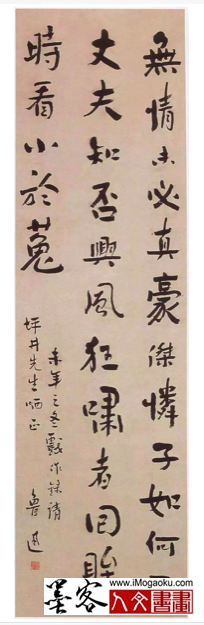 無情未必真豪傑憐子如何
丈夫知否興風狂嘯者回眸
時看小於菟
未年之冬戲作錄請
坪井先生哂正
魯迅
www.iMogaoku.com
墨客